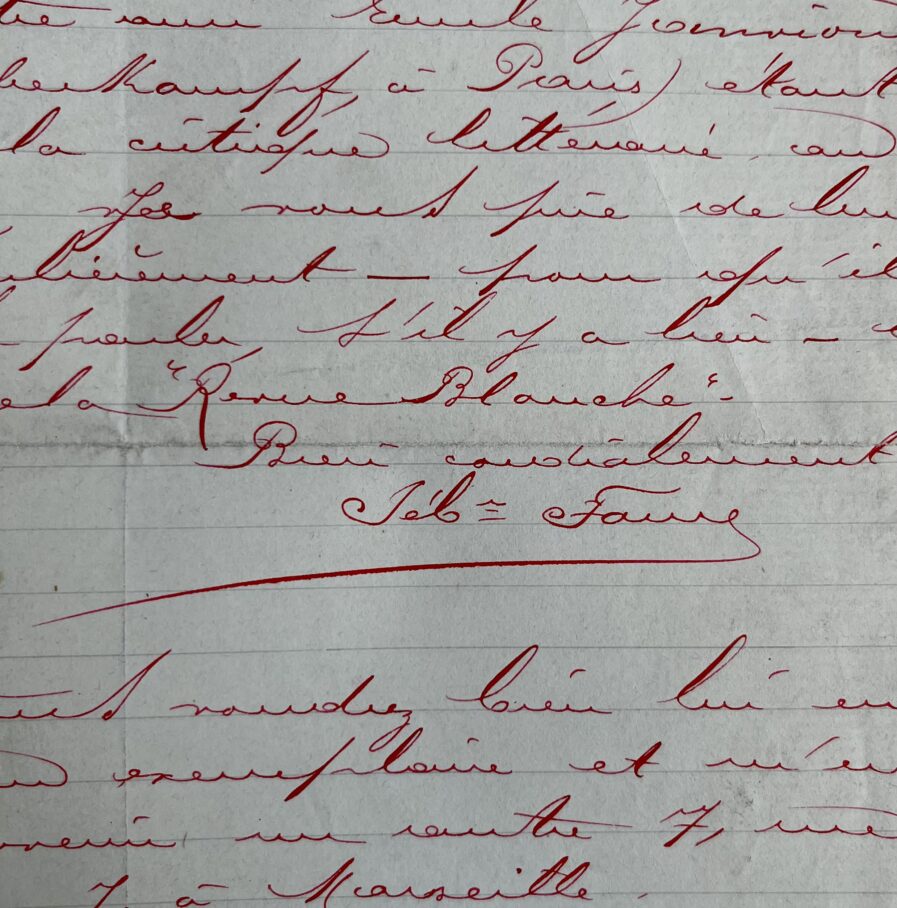 tre ami Emile Janvion
berkampf, à Paris) étant
la critique littéraire, au
Je vous prie de lui
ulièrement — pour qu'il
parler, s'il y a lieu —
de la "Revue Blanche".
Bien cordialement
Séb= Faure
ous voudrez bien lui en
exemplaire et m'en
venir un autre 7, rue
7, à Marseille.